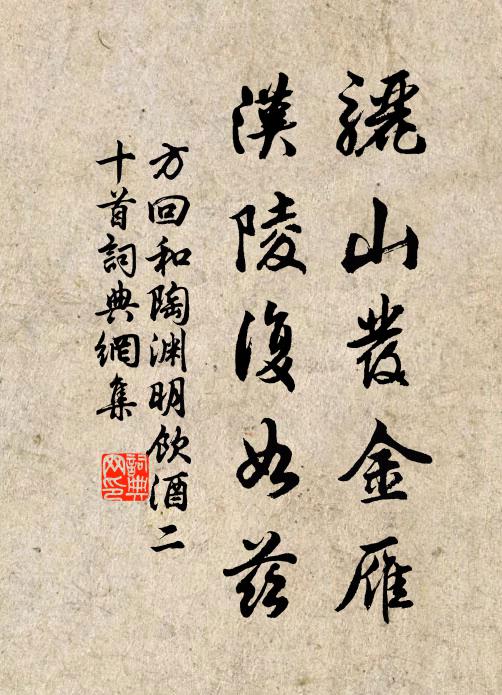 驪山發金雁
漢陵復如茲
方回和陶渊明飲酒二
十首詞典網集
詞典網印